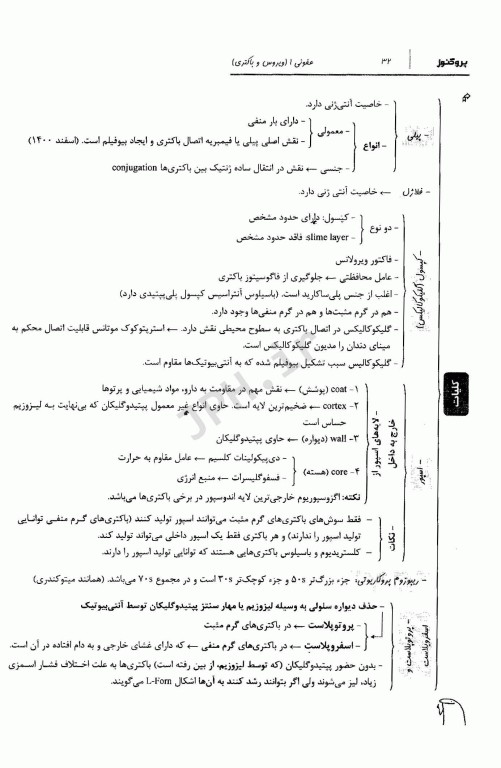 بروکنوز
۳۲
عفونی ۱ (ویروس و باکتری)
- پیلی
- خاصیت آنتی‌ژنی دارد.
- انواع
- معمولی
- دارای بار منفی
- نقش اصلی پیلی یا فیمبریه اتصال باکتری و ایجاد بیوفیلم است. (اسفند ۱۴۰۰)
- جنسی ← نقش در انتقال ساده ژنتیک بین باکتری‌ها conjugation
- فلاژل ← خاصیت آنتی ژنی دارد.
- کپسول (گلیکوکالیکس)
- دو نوع
- کپسول: دارای حدود مشخص
- slime layer: فاقد حدود مشخص
- فاکتور ویرولانس
- عامل محافظتی ← جلوگیری از فاگوسیتوز باکتری
- اغلب از جنس پلی‌ساکارید است. (باسیلوس آنتراسیس کپسول پلی‌پپتیدی دارد)
- هم در گرم مثبت‌ها و هم در گرم منفی‌ها وجود دارد.
- گلیکوکالیکس در اتصال باکتری به سطوح محیطی نقش دارد. ← استرپتوکوک موتانس قابلیت اتصال محکم به
مینای دندان را مدیون گلیکوکالیکس است.
- گلیکوکالیس سبب تشکیل بیوفیلم شده که به آنتی‌بیوتیک‌ها مقاوم است.
کلیات
- اسپور
- لایه‌های اسپور از
خارج به داخل
۱- coat (پوشش) ← نقش مهم در مقاومت به دارو، مواد شیمیایی و پرتوها
۲- cortex ← ضخیم‌ترین لایه است. حاوی انواع غیر معمول پپتیدوگلیکان که بی‌نهایت به لیزوزیم
حساس است
۳- wall (دیواره) ← حاوی پپتیدوگلیکان
۴- core (هسته)
- دی‌پیکولینات کلسیم ← عامل مقاوم به حرارت
- فسفوگلیسرات ← منبع انرژی
نکته: اگزوسپوریوم خارجی‌ترین لایه اندوسپور در برخی باکتری‌ها می‌باشد.
- نکات
- فقط سوش‌های باکتری‌های گرم مثبت می‌توانند اسپور تولید کنند (باکتری‌های گرم منفی توانایی
تولید اسپور را ندارند) و هر باکتری فقط یک اسپور داخلی می‌تواند تولید کند.
- کلستریدیوم و باسیلوس باکتری‌هایی هستند که توانایی تولید اسپور را دارند.
- ریبوزوم پروکاریوتی: جزء بزرگ‌تر ۵۰s و جزء کوچک‌تر ۳۰s است و در مجموع ۷۰s می‌باشد. (همانند میتوکندری)
- پروتوپلاست و
اسفروپلاست
- حذف دیواره سلولی به وسیله لیزوزیم یا مهار سنتز پپتیدوگلیکان توسط آنتی‌بیوتیک
- پروتوپلاست ← در باکتری‌های گرم مثبت
- اسفروپلاست ← در باکتری‌های گرم منفی ← که دارای غشای خارجی و به دام افتاده در آن است.
- بدون حضور پپتیدوگلیکان (که توسط لیزوزیم، از بین رفته است) باکتری‌ها به علت اختلاف فشار اسمزی
زیاد، لیز می‌شوند ولی اگر بتوانند رشد کنند به آن‌ها اشکال L-Forn می‌گویند.